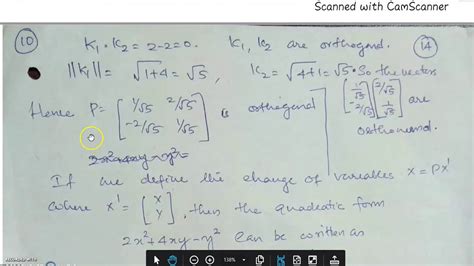 Scanned with CamScanner
10
K₁·K₂ = 2-2=0. K₁, K₂ are orthogonal. 14
||K₁|| = √1+4 = √5, K₂ = √4+1 = √5. So the vectors
Hence P = [1/√5 2/√5; -2/√5 1/√5] is orthogonal [1/√5; -2/√5] [2/√5; 1/√5] are
orthonormal.
2x²+4xy-y²=
If we define the change of variables x = PX'
where X' = [x; y], then the quadratic form
2x²+4xy-y² can be written as
138%